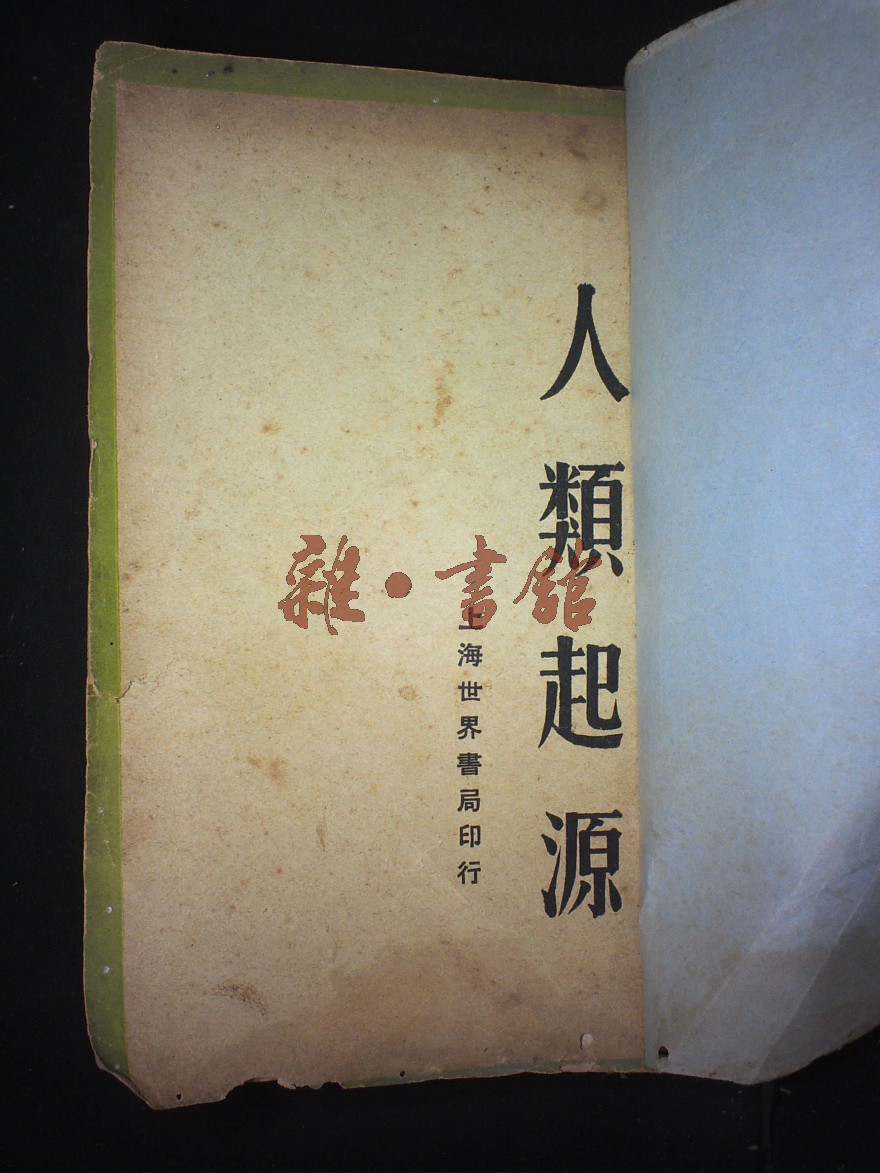 人類起源
上海世界書局印行
雜·書館